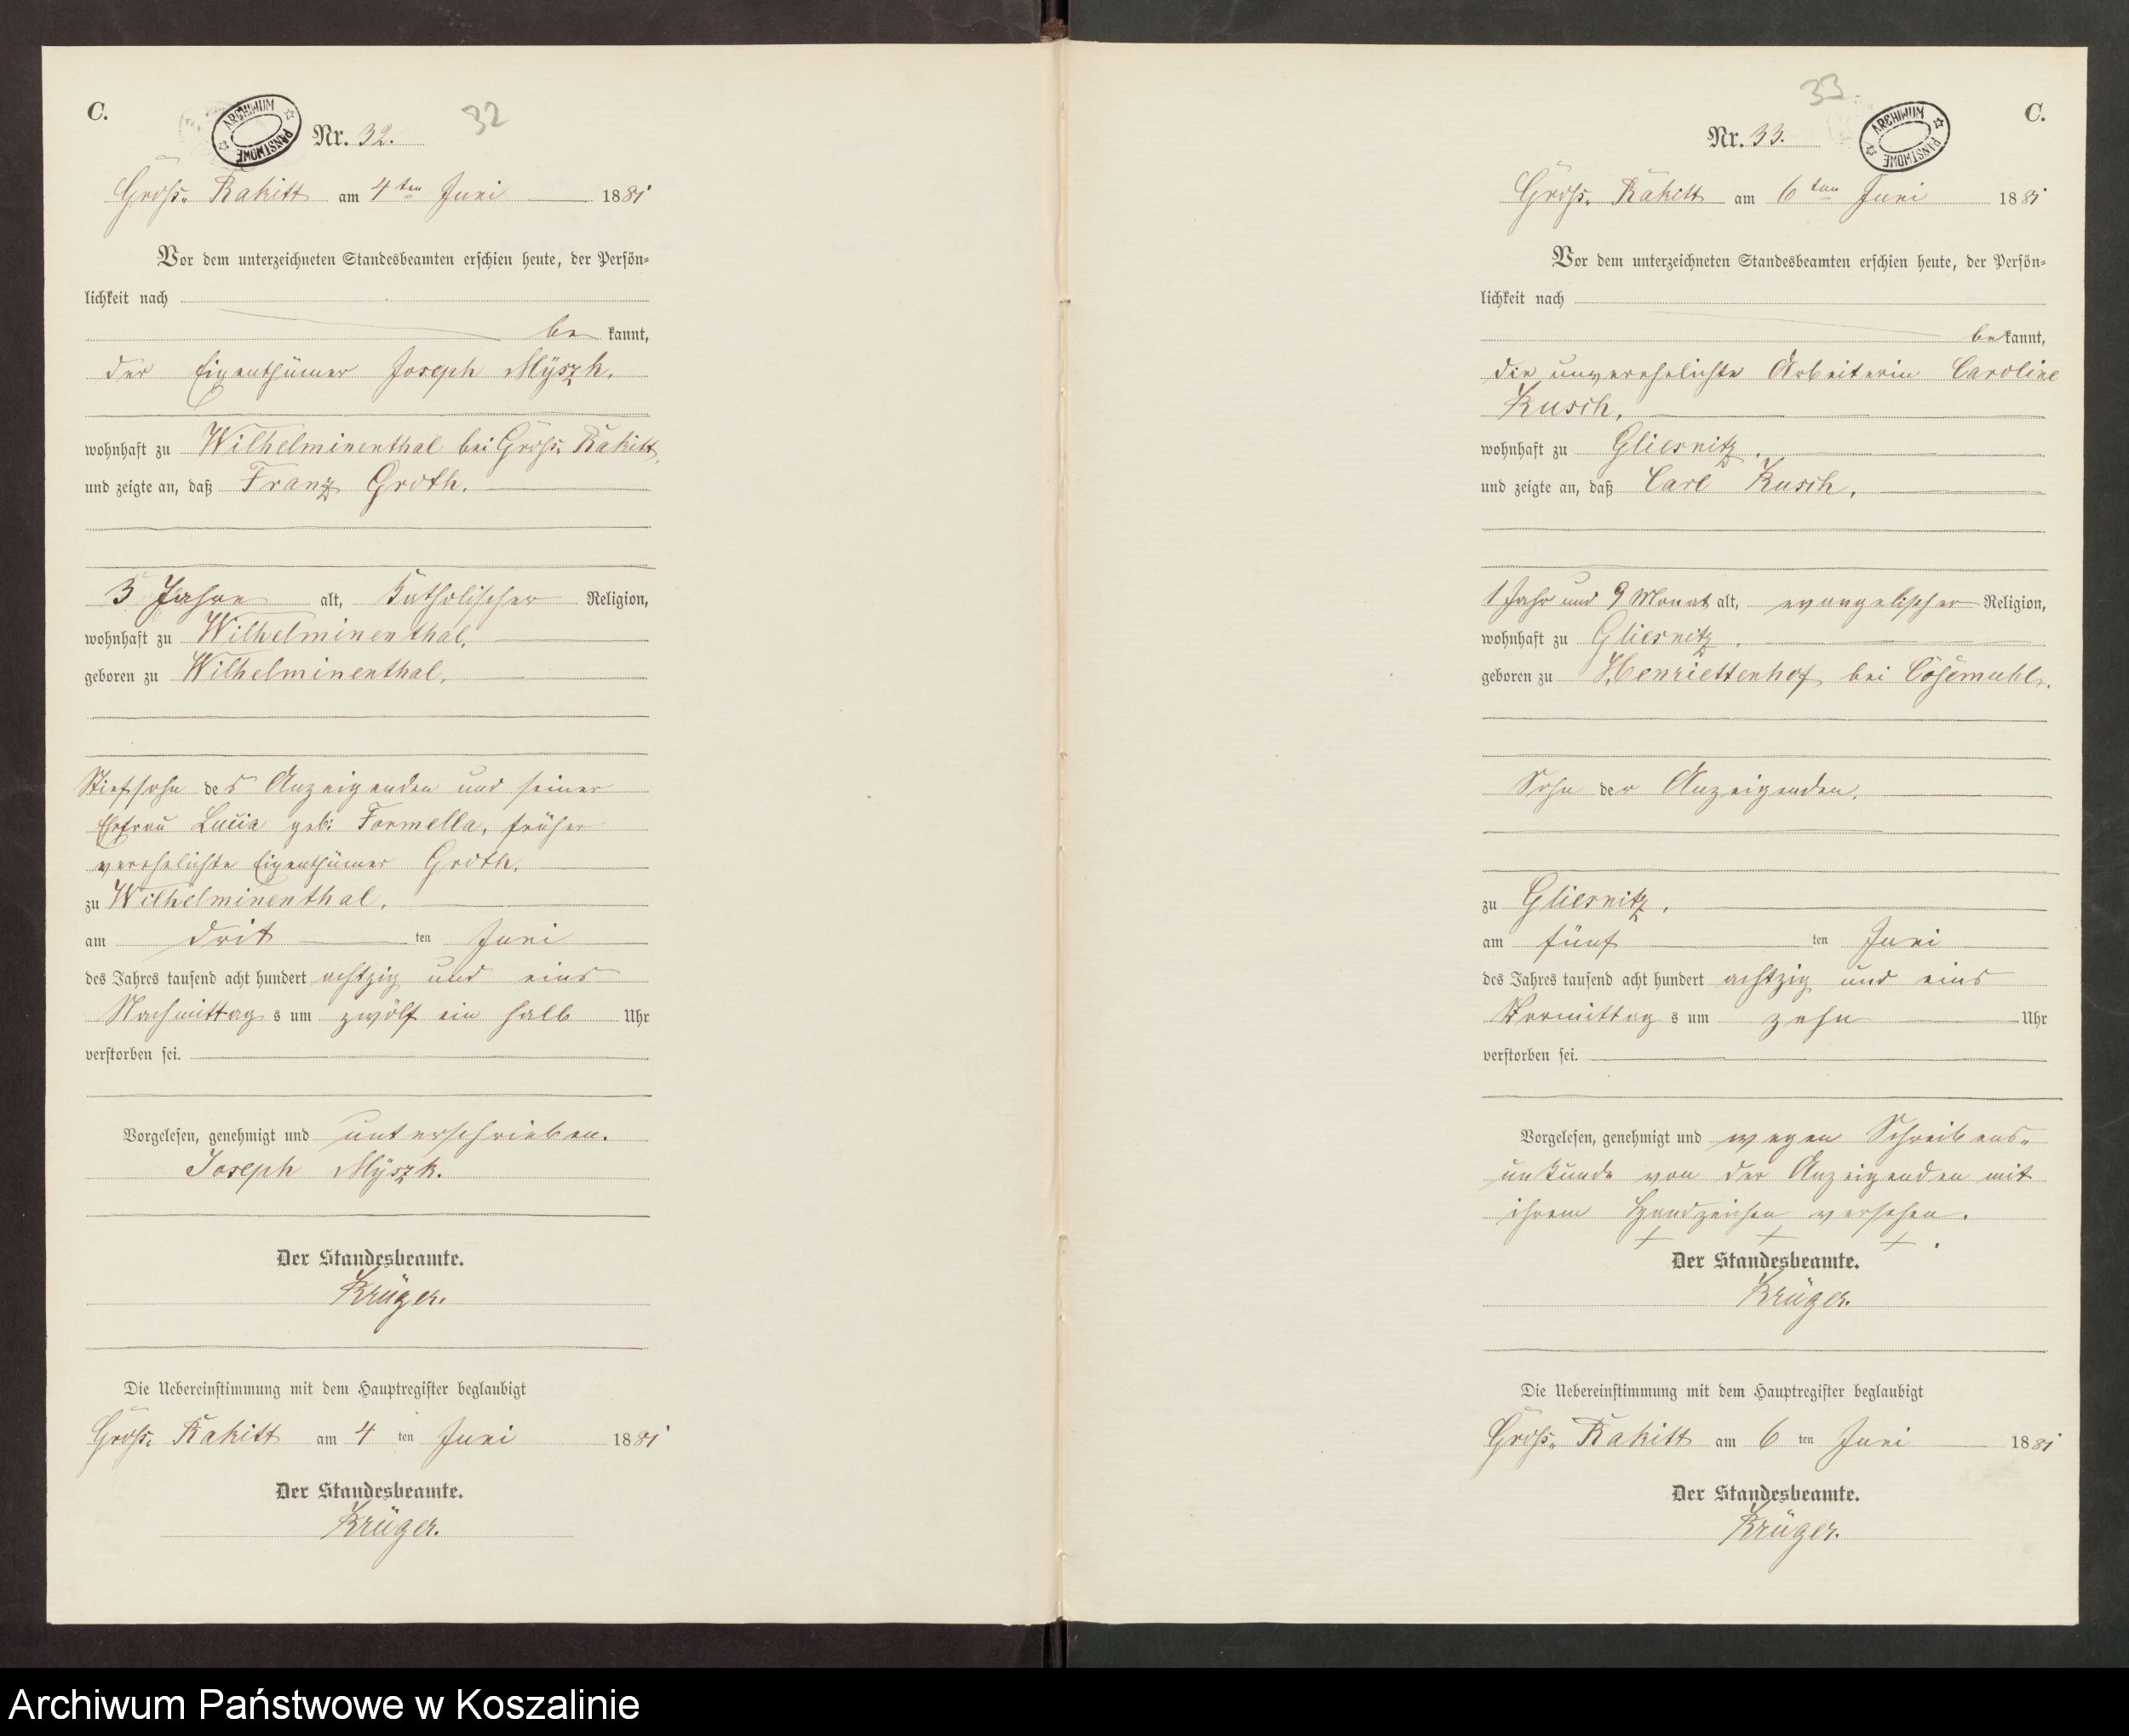 C.
ARCHIWUM PAŃSTWOWE
Nr. 32.
32
Groß. Rakitt am 4ten Juni 1881
Vor dem unterzeichneten Standesbeamten erschien heute, der Persön-
lichkeit nach
be kannt,
der Eigenthümer Joseph Mÿszk.
wohnhaft zu Wilhelminenthal bei Groß. Rakitt,
und zeigte an, daß Franz Groth.
3 Jahre alt, katholischer Religion,
wohnhaft zu Wilhelminenthal,
geboren zu Wilhelminenthal,
Stiefsohn des Anzeigenden und seiner
Ehefrau Lucia geb: Formella, früher
verehelichte Eigenthümer Groth.
zu Wilhelminenthal,
am drit ten Juni
des Jahres tausend acht hundert achtzig und eins
Nachmittag s um zwölf ein halb Uhr
verstorben sei.
Vorgelesen, genehmigt und unterschrieben.
Joseph Mÿszk.
Der Standesbeamte.
Krüger.
Die Uebereinstimmung mit dem Hauptregister beglaubigt
Groß. Rakitt am 4 ten Juni 1881
Der Standesbeamte.
Krüger.
33
C.
ARCHIWUM PAŃSTWOWE
Nr. 33.
Groß. Rakitt am 6ten Juni 1881
Vor dem unterzeichneten Standesbeamten erschien heute, der Persön-
lichkeit nach
bekannt,
die unverehelichte Arbeiterin Caroline
Kusch,
wohnhaft zu Gliesnitz,
und zeigte an, daß Carl Kusch,
1 Jahr und 9 Monat alt, evangelischer Religion,
wohnhaft zu Gliesnitz,
geboren zu Henriettenhof bei
Sohn der Anzeigenden,
zu Gliesnitz,
am fünf ten Juni
des Jahres tausend acht hundert achtzig und eins
Vormittag s um zehn Uhr
verstorben sei.
Vorgelesen, genehmigt und wegen Schreibens-
unkunde von der Anzeigenden mit
ihrem Handzeichen versehen.
+ + +.
Der Standesbeamte.
Krüger.
Die Uebereinstimmung mit dem Hauptregister beglaubigt
Groß. Rakitt am 6 ten Juni 1881
Der Standesbeamte.
Krüger.
Archiwum Państwowe w Koszalinie